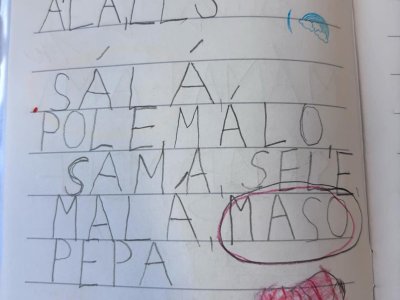 SÁLÁ
POLE MÁLO,
SAMÁ, SELE,
MALÁ, MASO
PEPA